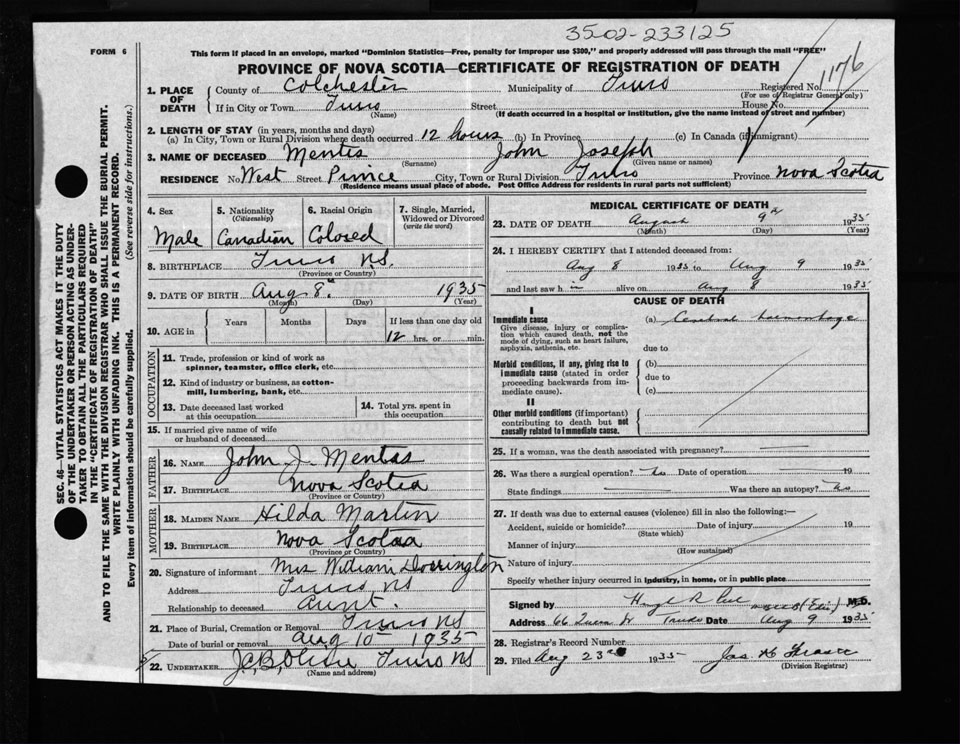 35-02-233125
FORM 6
This form if placed in an envelope, marked "Dominion Statistics—Free, penalty for improper use $300," and properly addressed will pass through the mail "FREE"
PROVINCE OF NOVA SCOTIA—CERTIFICATE OF REGISTRATION OF DEATH
1. PLACE OF DEATH
County of Colchester Municipality of Truro Registered No. 1176
(For use of Registrar General only)
If in City or Town Truro Street House No.
(Name) (If death occurred in a hospital or institution, give the name instead of street and number)
2. LENGTH OF STAY (in years, months and days)
(a) In City, Town or Rural Division where death occurred 12 hours (b) In Province (c) In Canada (if immigrant)
3. NAME OF DECEASED Mentis John Joseph
(Surname) (Given name or names)
RESIDENCE No. West Street Prince City, Town or Rural Division Truro Province Nova Scotia
(Residence means usual place of abode. Post Office Address for residents in rural parts not sufficient)
4. Sex Male
5. Nationality (Citizenship) Canadian
6. Racial Origin Colored
7. Single, Married, Widowed or Divorced (write the word)
8. BIRTHPLACE Truro N.S.
(Province or Country)
9. DATE OF BIRTH Aug 8th 1935
(Month) (Day) (Year)
10. AGE in Years Months Days If less than one day old
12 hrs. or min.
OCCUPATION
11. Trade, profession or kind of work as spinner, teamster, office clerk, etc.
12. Kind of industry or business, as cotton-mill, lumbering, bank, etc.
13. Date deceased last worked at this occupation
14. Total yrs. spent in this occupation
15. If married give name of wife or husband of deceased
FATHER
16. NAME John J. Mentas
17. BIRTHPLACE Nova Scotia
(Province or Country)
MOTHER
18. MAIDEN NAME Hilda Martin
19. BIRTHPLACE Nova Scotia
(Province or Country)
20. Signature of informant Mrs William Dorrington
Address Truro NS
Relationship to deceased Aunt.
21. Place of Burial, Cremation or Removal Truro NS
Date of burial or removal Aug 10 - 1935
22. UNDERTAKER J.C.B. Truro NS
(Name and address)
MEDICAL CERTIFICATE OF DEATH
23. DATE OF DEATH August 9th 1935
(Month) (Day) (Year)
24. I HEREBY CERTIFY that I attended deceased from:
Aug 8 1935 to Aug 9 1935
and last saw h im alive on Aug 8 1935
CAUSE OF DEATH
I
Immediate cause
Give disease, injury or complication which caused death, not the mode of dying, such as heart failure, asphyxia, asthenia, etc.
(a) Cerebral hemorrhage
due to
Morbid conditions, if any, giving rise to immediate cause (stated in order proceeding backwards from immediate cause).
(b)
due to
(c)
II
Other morbid conditions (if important) contributing to death but not causally related to immediate cause.
25. If a woman, was the death associated with pregnancy?
26. Was there a surgical operation? no Date of operation 19
State findings Was there an autopsy? no
27. If death was due to external causes (violence) fill in also the following:—
Accident, suicide or homicide? Date of injury 19
(State which)
Manner of injury
(How sustained)
Nature of injury
Specify whether injury occurred in industry, in home, or in public place
Signed by M.D.
Address 66 Queen St Truro Date Aug 9 1935
28. Registrar's Record Number
29. Filed Aug 23rd 1935 Jas. H
(Division Registrar)
SEC. 46—VITAL STATISTICS ACT MAKES IT THE DUTY
OF THE UNDERTAKER OR PERSON ACTING AS UNDER-
TAKER TO OBTAIN ALL THE PARTICULARS REQUIRED
IN THE "CERTIFICATE OF REGISTRATION OF DEATH"
AND TO FILE THE SAME WITH THE DIVISION REGISTRAR WHO SHALL ISSUE THE BURIAL PERMIT.
WRITE PLAINLY WITH UNFADING INK. THIS IS A PERMANENT RECORD.
Every item of information should be carefully supplied. (See reverse side for instructions.)